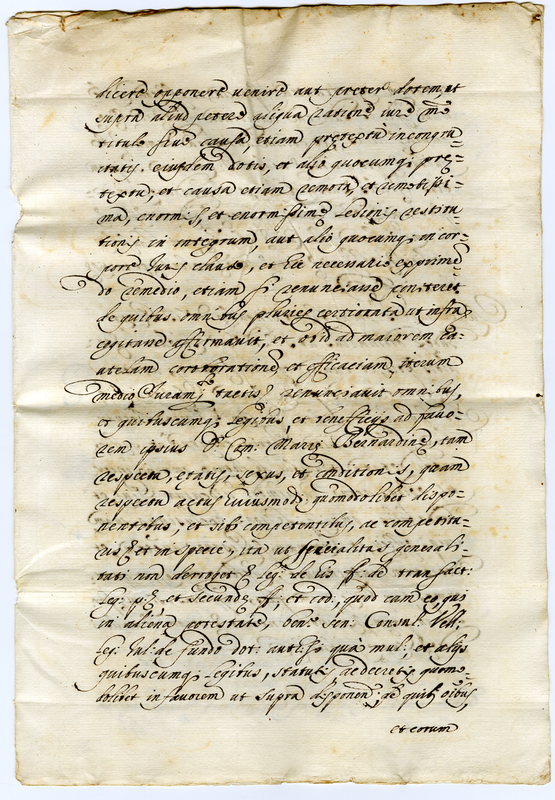 dicere opponere venire aut preter dotem ut
supra aliud petere aliqua ratione iure
titulo sive causa etiam pretextu incongru
itatis eiusdem dotis, et alio quocumq; pre=
textu, et causa etiam remota, et remotissi=
ma, enormis, et enormissime lesionis restitu=
tionis in integrum, aut alio quocumq; in cor=
pore Juris clauso, et hic necessario exprimen
do remedio, etiam si renunciasse
de quibus omnibus pluries certiorata ut infra
affirmavit, et ad maiorem ca=
utelam corroborationem et efficaciam iterum
medio Juramto tactis renunciavit omnibus,
et quibuscumq; legibus, et beneficijs ad favo=
rem ipsius D. Marie Bernardine, tam
respectu etatis, sexus, et conditionis, quam
respectu actus huiusmodi quomodolibet dispo=
nentibus, et sibi competentibus, ac competitu=
ris et in specie, ita ut generalitas generali=
tati non deroget leg: de his ff: de transact:
leg: p: et secunde ff: et cod: quod cum eo qui
in aliena potestate, bene: Sen: Consul: Vell:
leg: Jul: de fundo dot: aut: si qua mul: et alijs
quibuscumq; legibus, statutis ac decretis quomo=
dolibet in favorem ut supra disponen: quib: oibus,
et eorum